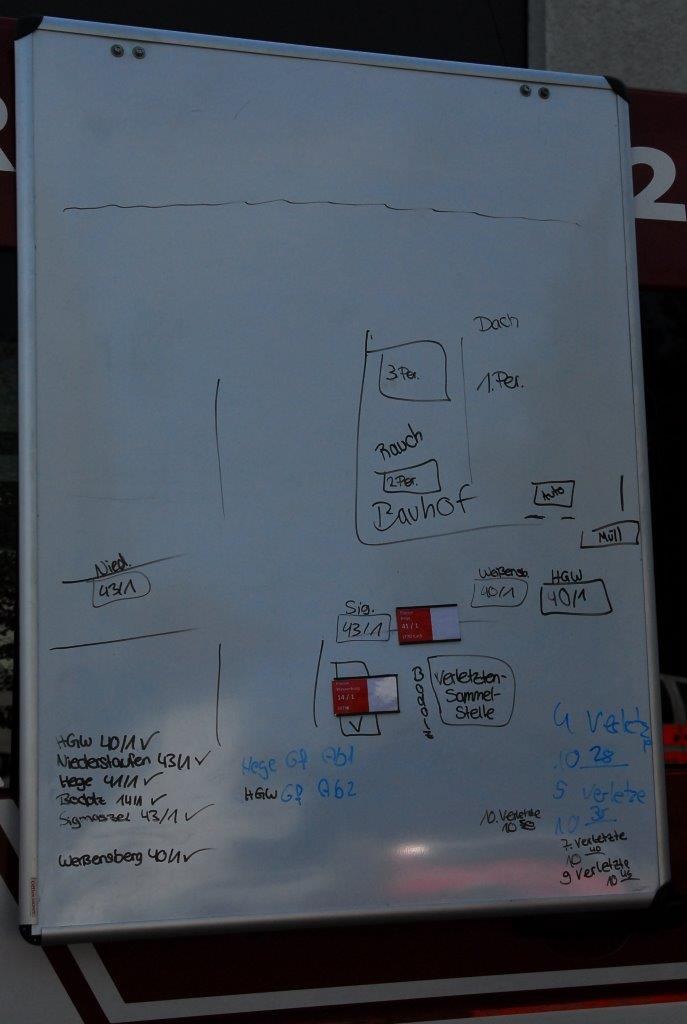 2
Dach
3 Per.
1. Per.
Rauch
2 Per.
Bauhof
Auto
Müll
Nied.
43/1
Weißensb.
40/1
HGW
40/1
Sig.
43/1
41/1
14/1
Verletzten-
Sammel-
Stelle
HGW 40/1 ✓
Niederstaufen 43/1 ✓
Hege 41/1 ✓
Bodolz 14/1 ✓
Sigmarszell 43/1 ✓
Weißensberg 40/1 ✓
Hege GF Ab1
HGW GF Ab2
4 Verletzte
10 28
5 Verletze
10 35
7. Verletzte
10 40
9 Verletzte
10 45
10. Verletzte
10